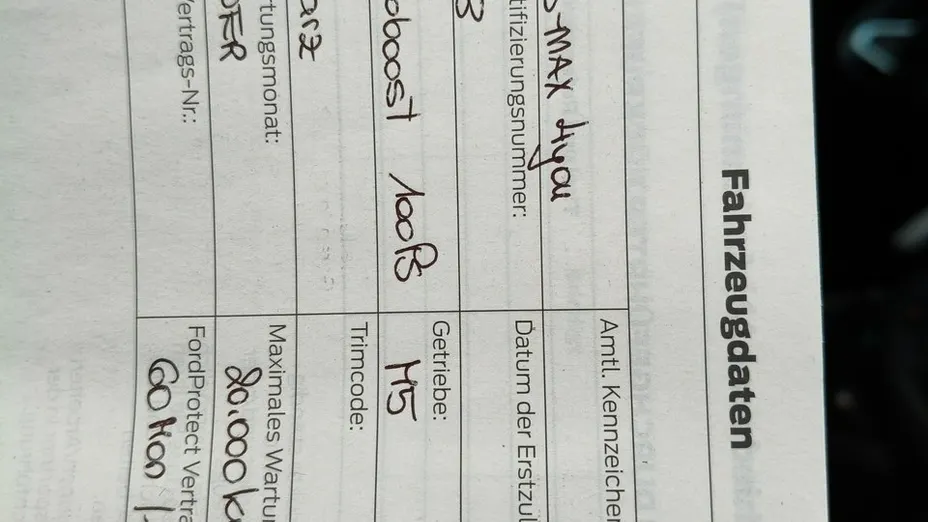 Fahrzeugdaten
Amtl. Kennzeichen
-MAX Hyou
tifizierungsnummer: Datum der Erstzul
3
Getriebe:
oboost 100PS M5
Trimcode:
arz
rtungsmonat: Maximales Wartun
20.000 k
Vertrags-Nr.: FordProtect Vertra
60 Mon